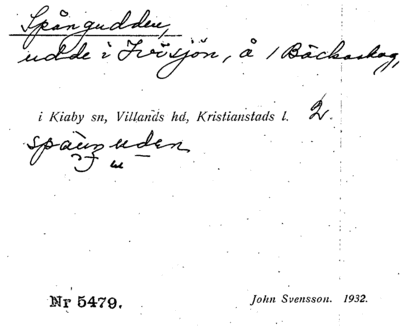 Spångudden,
udde i Ivösjön, å 1 Bäckaskog,
i Kiaby sn, Villands hd, Kristianstads l. 2.
Nr 5479.
John Svensson. 1932.